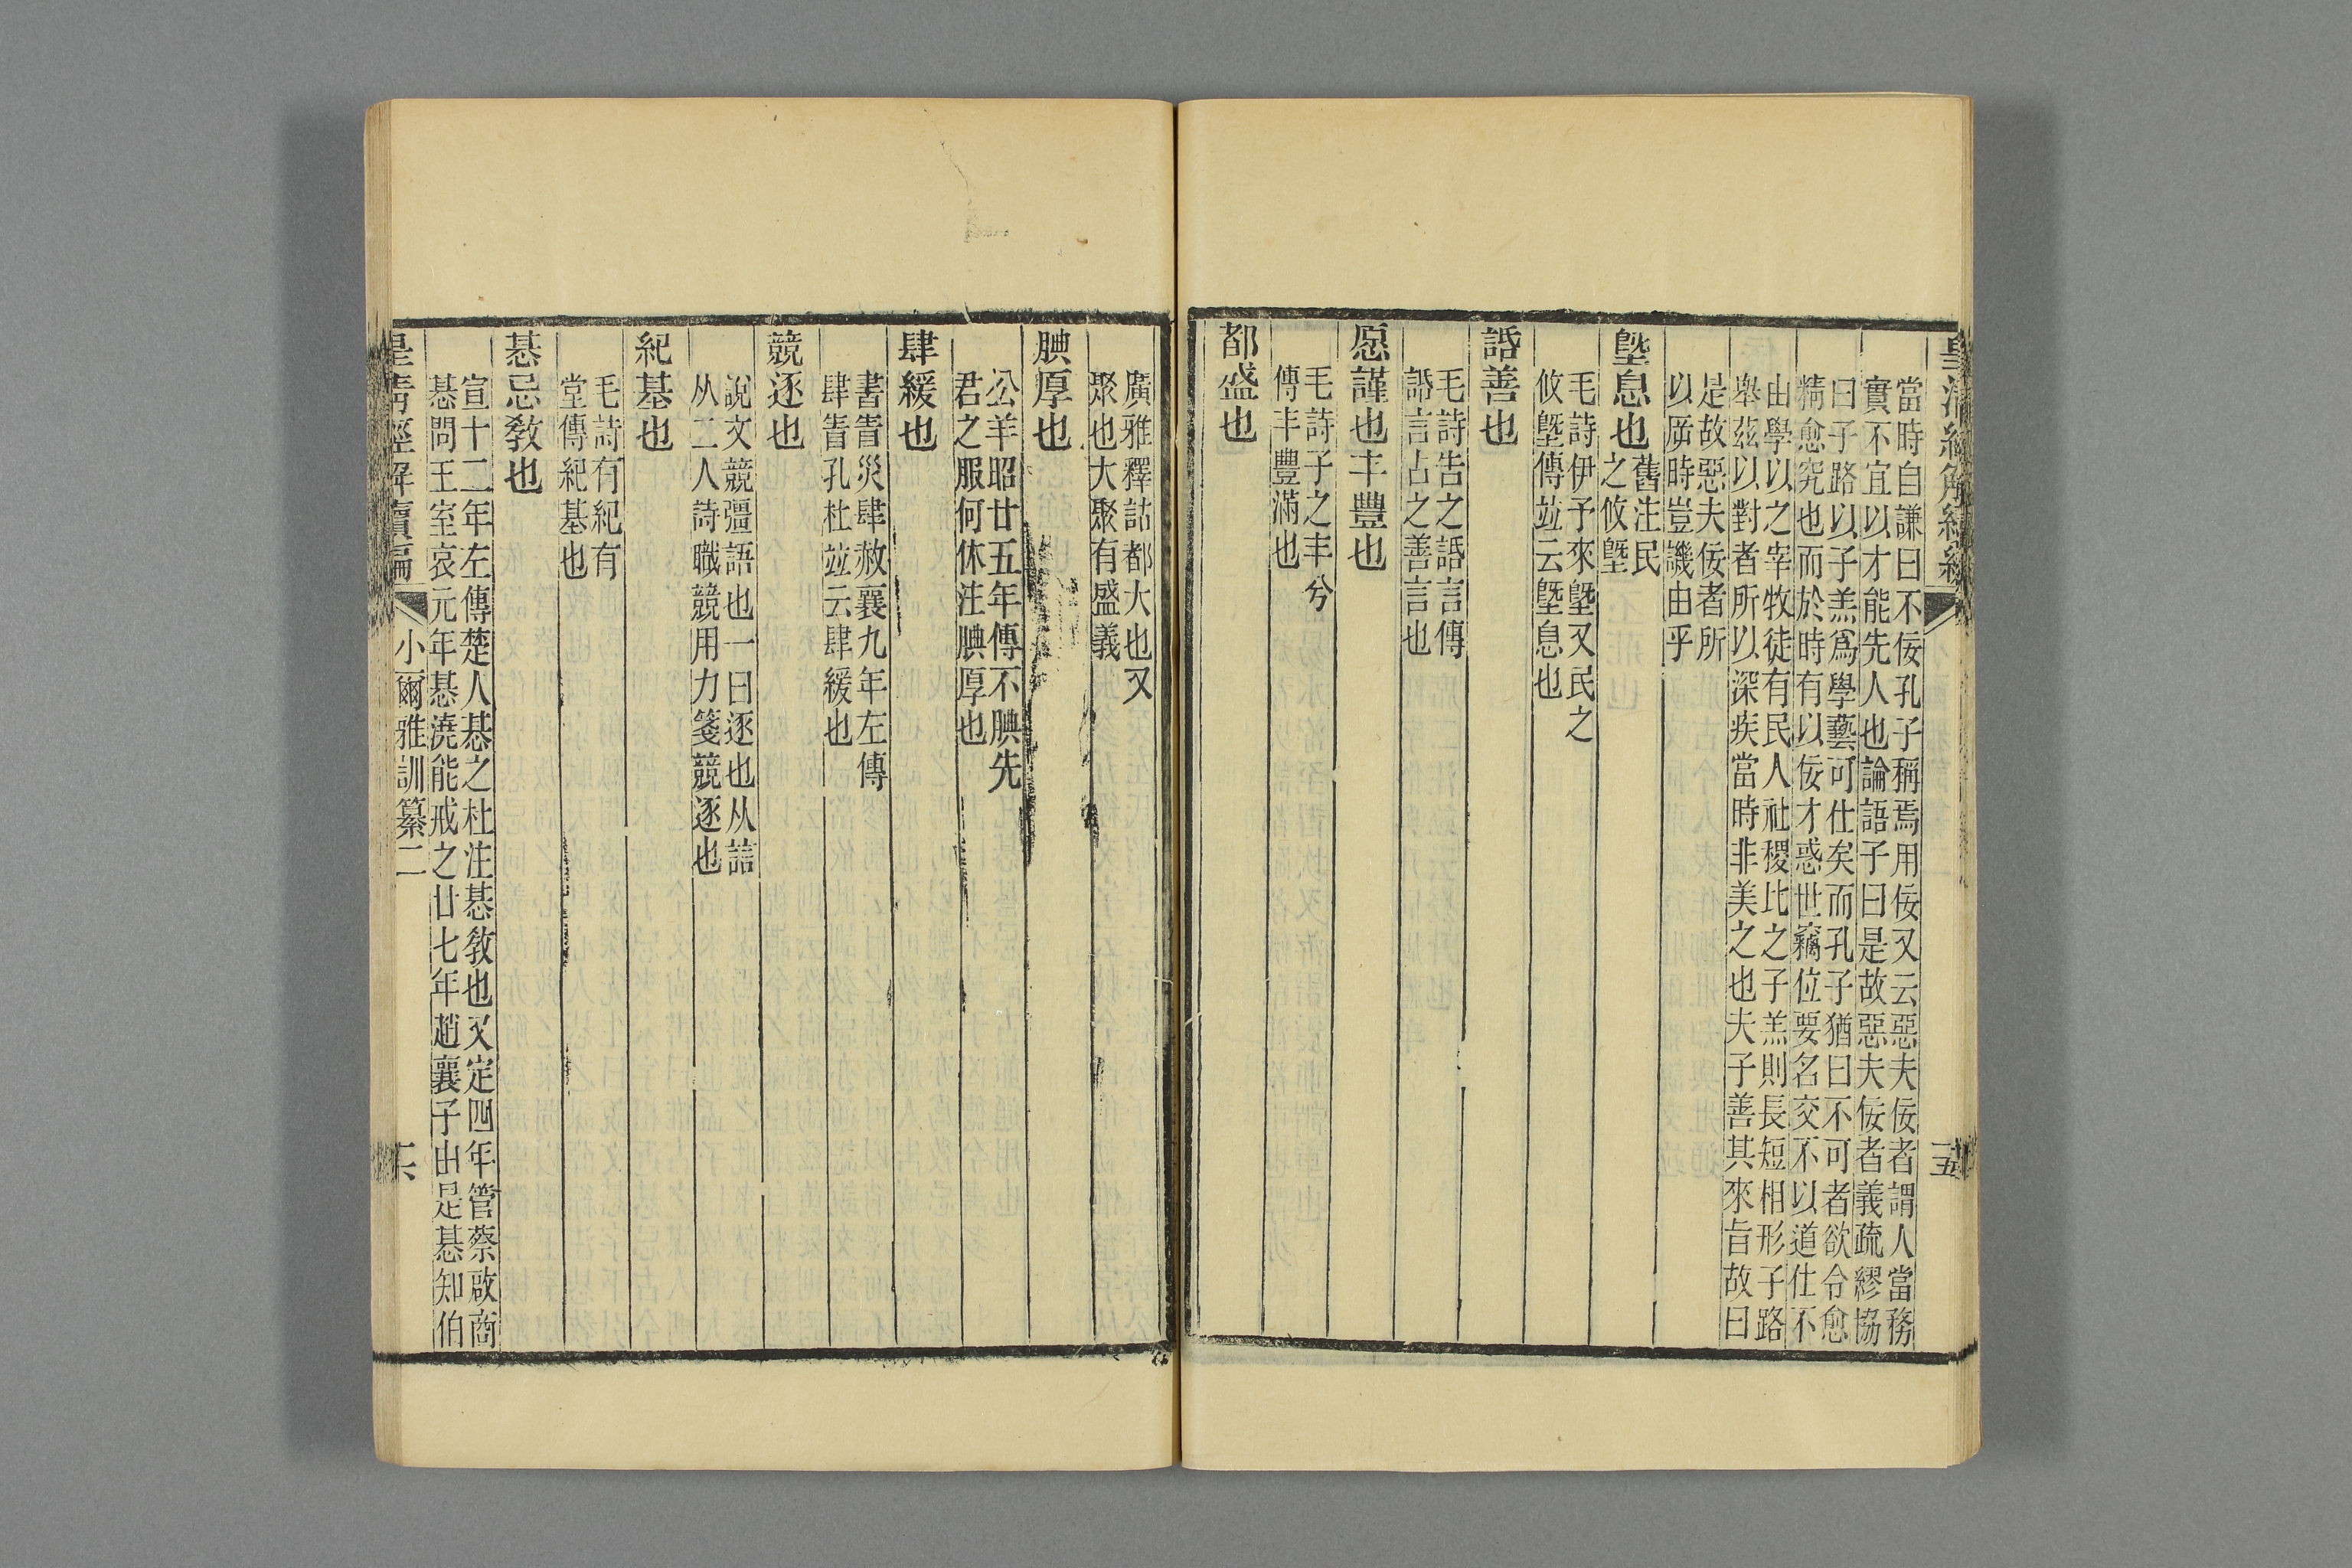 皇清經解續編
五
當時自謙曰不佞孔子稱焉用佞又云惡夫佞者謂人當務
實不宜以才能先人也論語子曰是故惡夫佞者義疏繆協
曰子路以子羔爲學藝可仕矣而孔子猶曰不可者欲令愈
精愈究也而於時有以佞才惑世竊位要名交不以道仕不
由學以之宰牧徒有民人社稷比之子羔則長短相形子路
舉茲以對者所以深疾當時非美之也夫子善其來旨故曰
是故惡夫佞者所
以厲時豈譏由乎
塈息也
舊注民
之攸塈
毛詩伊予來塈又民之
攸塈傳竝云塈息也
話善也
毛詩告之話言傳
話言古之善言也
愿謹也丰豐也
毛詩子之丰兮
傳丰豐滿也
都盛也
廣雅釋詁都大也又
聚也大聚有盛義
腆厚也
公羊昭廿五年傳不腆先
君之服何休注腆厚也
肆緩也
書眚災肆赦襄九年左傳
肆眚孔杜竝云肆緩也
競逐也
說文競彊語也一曰逐也从誩
从二人詩職競用力箋競逐也
紀基也
毛詩有紀有
堂傳紀基也
惎忌敎也
宣十二年左傳楚人惎之杜注惎敎也又定四年管蔡啟商
惎問王室哀元年惎澆能戒之廿七年趙襄子由是惎知伯
皇淸經解續編
小爾雅訓纂二
六